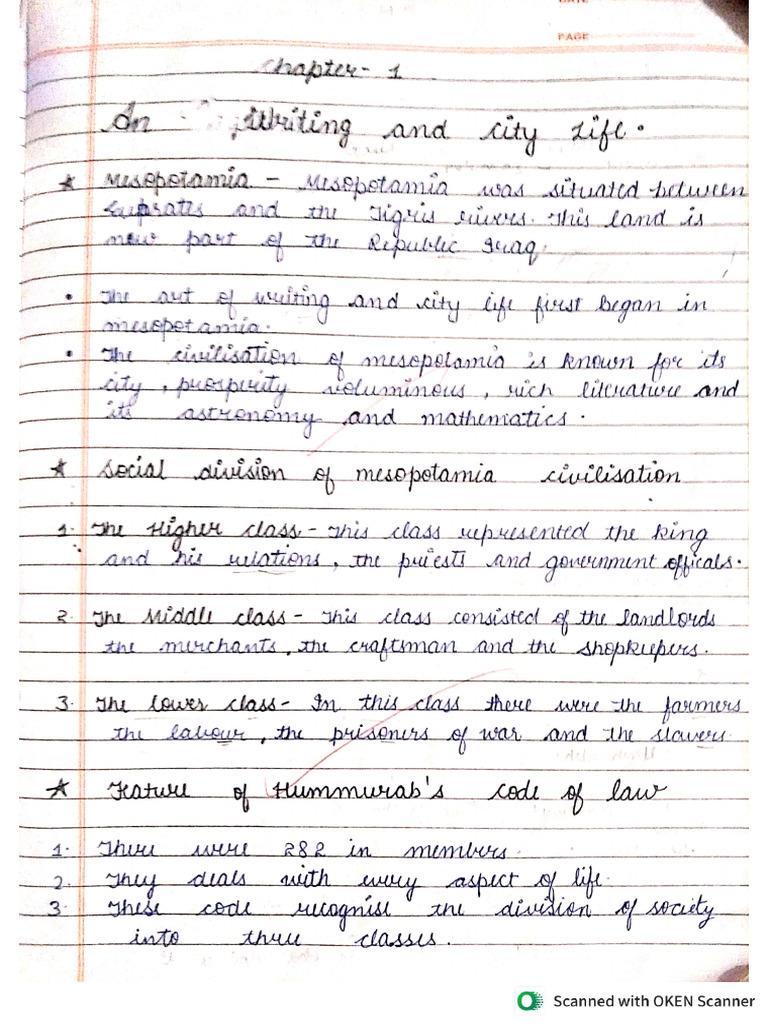 DATE
PAGE
Chapter - 1
On Writing and city Life.
* Mesopotamia - Mesopotamia was situated between
Euprates and the Tigris rivers. This land is
now part of the Republic Iraq.
• The art of writing and city life first began in
mesopotamia.
• The civilisation of mesopotamia is known for its
city, prosperity voluminous, rich literature and
its astronomy and mathematics.
* Social division of mesopotamia civilisation
1. The Higher class - This class represented the king
and his relations, the priests and government officals.
2. The Middle class - This class consisted of the landlords
the merchants, the craftsman and the shopkeepers.
3. The lower class - In this class there were the farmers
the labour, the prisoners of war and the slavers
* Feature of Hummurab's code of law
1. There were 282 in members.
2. They deals with every aspect of life.
3. These code recognise the division of society
into three classes.
Scanned with OKEN Scanner